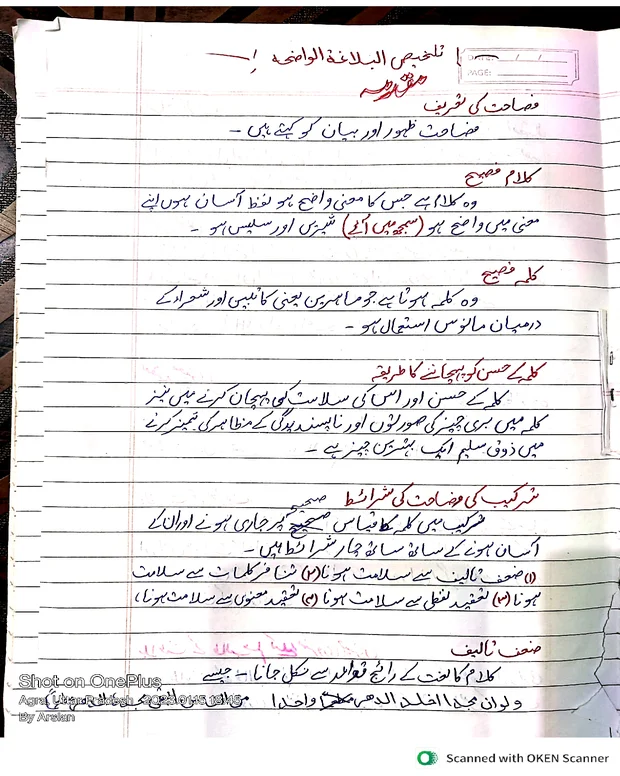 تلخیص البلاغۃ الواضحہ
DATE:
PAGE:
مقدمہ
فصاحت کی تعریف
فصاحت ظہور اور بیان کو کہتے ہیں ۔
کلام فصیح
وہ کلام ہے جس کا معنی واضح ہو لفظ آسان ہوں اپنے
معنی میں واضح ہو (سمجھ میں آئے) شیریں اور سلیس ہو ۔
کلمہ فصیح
وہ کلمہ ہوتا ہے جو ماہرین یعنی کاتبین اور شعراء کے
درمیان مانوس استعمال ہو ۔
کلمہ کے حسن کو پہچاننے کا طریقہ
کلمہ کے حسن اور اس کی سلاست کی پہچان کرنے میں نیز
کلمہ میں بری چیز کی صورتوں اور ناپسندیدگی کے مظاہر کی تمیز کرنے
میں ذوق سلیم ایک بہترین چیز ہے ۔
ترکیب کی فصاحت کی شرائط
صحیح
ترکیب میں کلمہ کا قیاس صحیح پر جاری ہونے اور ان کے
آسان ہونے کے ساتھ ساتھ چار شرائط ہیں ۔
(۱) ضعف تالیف سے سلامت ہونا (۲) تنافر کلمات سے سلامت
ہونا (۳) تعقید لفظی سے سلامت ہونا (۴) تعقید معنوی سے سلامت ہونا ،
ضعف تالیف
کلام کا لغت کے رائج قواعد سے نکل جانا ۔ جیسے
ولو ان مجدا اخلد الدهر واحدا من الناس
Shot on OnePlus
Agra, Uttar Pradesh
By Arslan
Scanned with OKEN Scanner